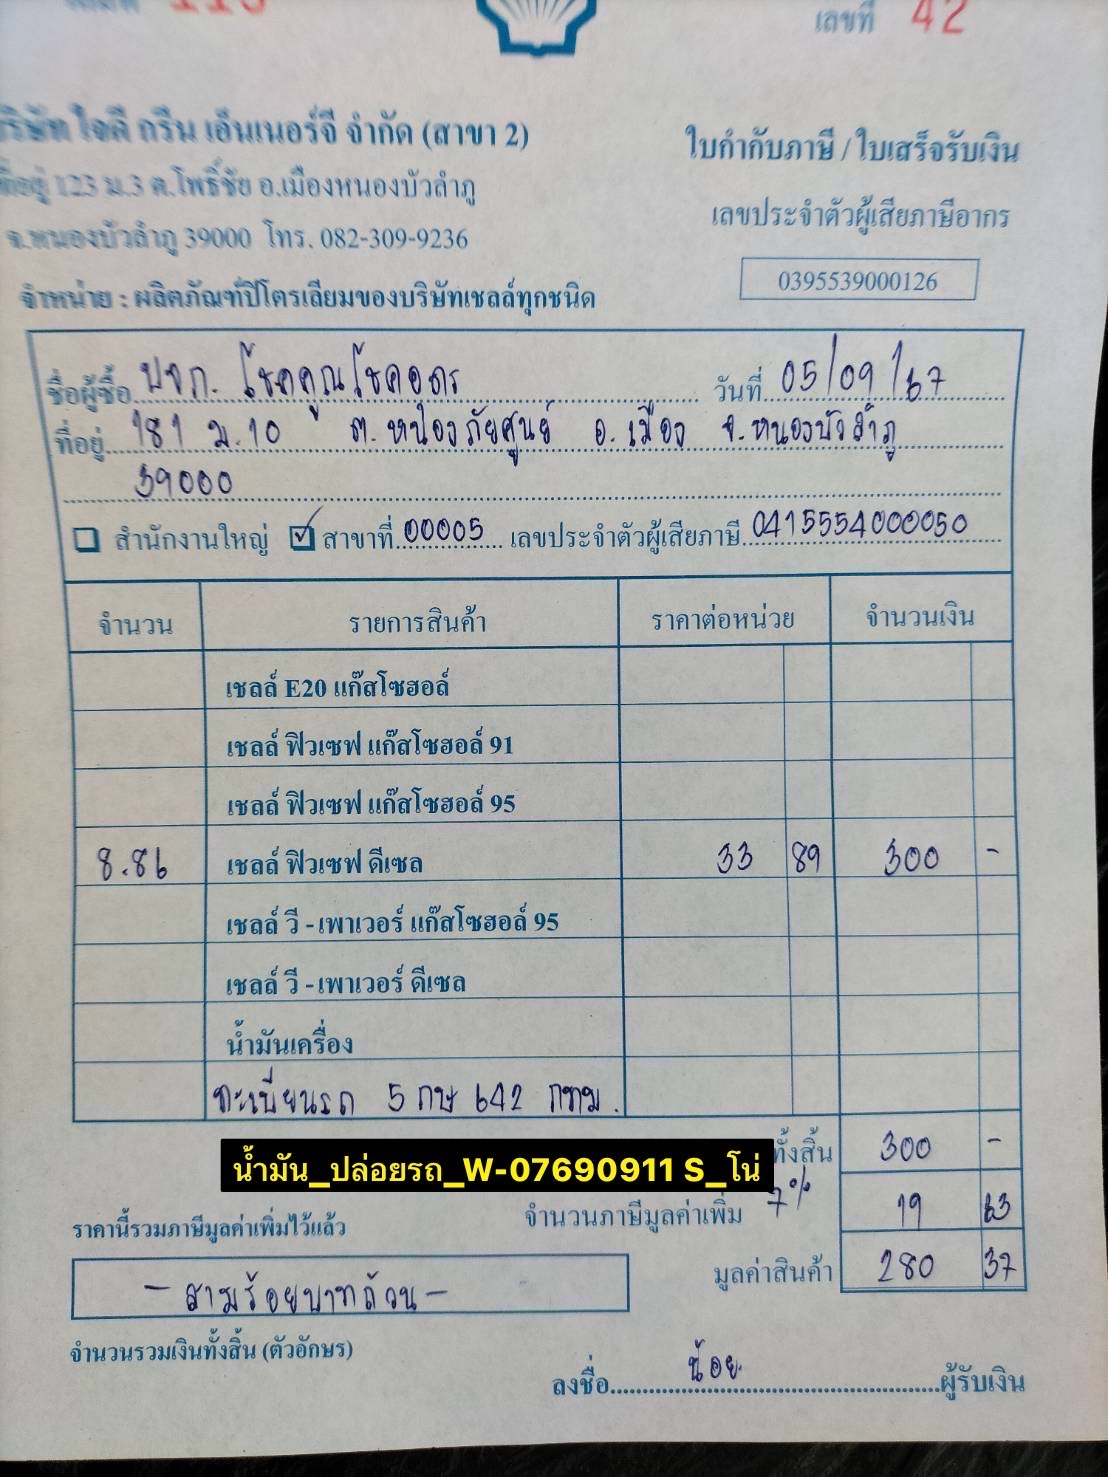 เลขที่ 42
บริษัท ใจดี กรีน เอ็นเนอร์จี จำกัด (สาขา 2)
ใบกำกับภาษี / ใบเสร็จรับเงิน
ที่อยู่ 123 ม.3 ต.โพธิ์ชัย อ.เมืองหนองบัวลำภู
เลขประจำตัวผู้เสียภาษีอากร
จ.หนองบัวลำภู 39000 โทร. 082-309-9236
0395539000126
จำหน่าย : ผลิตภัณฑ์ปิโตรเลียมของบริษัทเชลล์ทุกชนิด
ชื่อผู้ซื้อ บจก. โชคคูณโชคอดร วันที่ 05/09/67
ที่อยู่ 181 ม.10 ต.หนองภัยศูนย์ อ.เมือง จ.หนองบัวลำภู
39000
สำนักงานใหญ่ ✓ สาขาที่ 00005 เลขประจำตัวผู้เสียภาษี 0415554000050
จำนวน รายการสินค้า ราคาต่อหน่วย จำนวนเงิน
เชลล์ E20 แก๊สโซฮอล์
เชลล์ ฟิวเซฟ แก๊สโซฮอล์ 91
เชลล์ ฟิวเซฟ แก๊สโซฮอล์ 95
8.86 เชลล์ ฟิวเซฟ ดีเซล 33 89 300 -
เชลล์ วี - เพาเวอร์ แก๊สโซฮอล์ 95
เชลล์ วี - เพาเวอร์ ดีเซล
น้ำมันเครื่อง
ทะเบียนรถ 5 กษ 642 กทม.
ทั้งสิ้น 300 -
น้ำมัน_ปล่อยรถ_W-07690911 S_โน่
จำนวนภาษีมูลค่าเพิ่ม 7% 19 63
ราคานี้รวมภาษีมูลค่าเพิ่มไว้แล้ว
มูลค่าสินค้า 280 37
- สามร้อยบาทถ้วน -
จำนวนรวมเงินทั้งสิ้น (ตัวอักษร)
ลงชื่อ น้อย ผู้รับเงิน